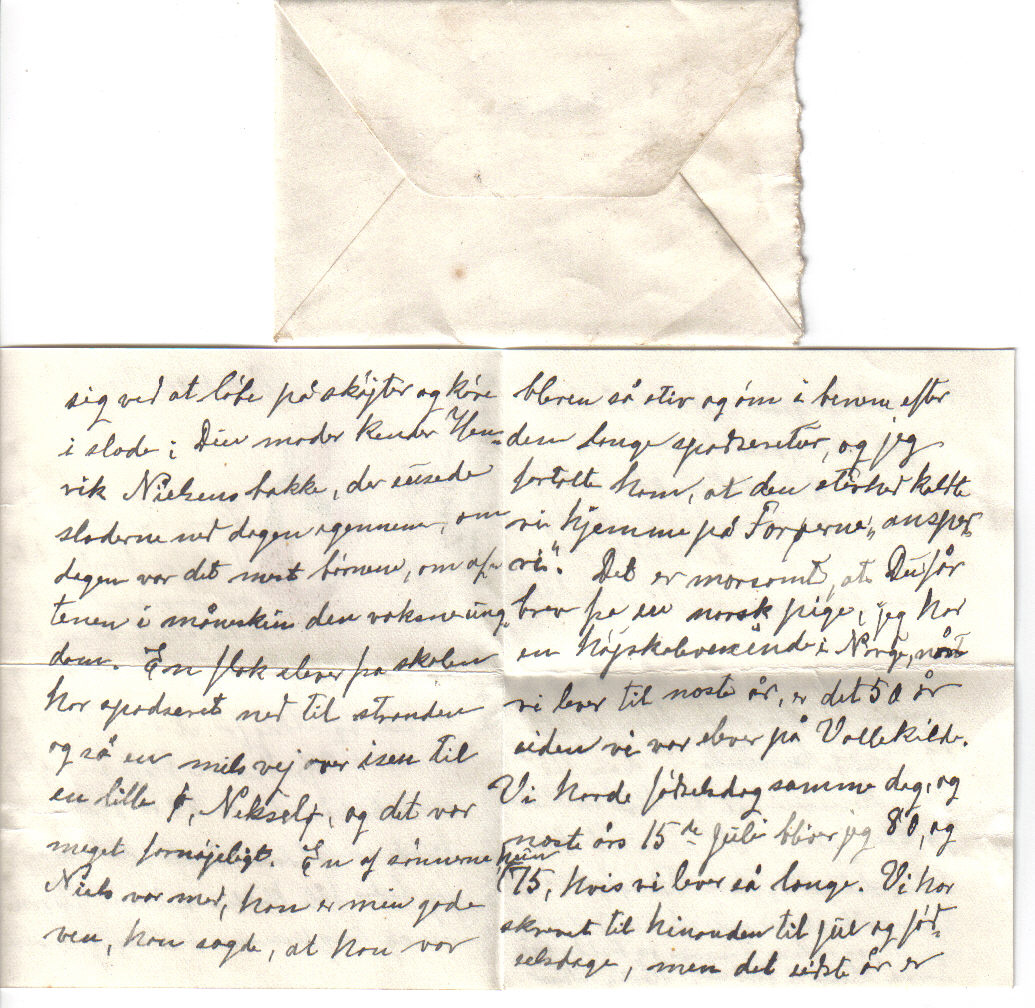 sig ved at løbe på skøjter og køre
i slæde; Din moder kender Hen-
rik Nielsens bakke, der susede
slæderne ned dagen igennem, om
dagen var det mest børnene, om af-
tenen i måneskin den voksne ung-
dom. En flok elever fra skolen
har spadseret ned til stranden
og så en mils vej over isen til
en lille ø, Nekselø, og det var
meget fornøjeligt. En af sønnerne
Niels var med, han er min gode
ven, han sagde, at han var
bleven så stiv og øm i benene efter
den lange spadseretur, og jeg
fortalte ham, at den stivhed kaldte
vi hjemme på Færøerne „
". Det er morsomt, at Du får
brev fra en norsk pige, jeg har
en højskoleveninde i Norge, når
vi lever til næste år, er det 50 år
siden vi var elever på Vallekilde.
Vi havde fødselsdag samme dag, og
næste års 15de juli bliver jeg 80, og
hun 75, hvis vi lever så længe. Vi har
skrevet til hinanden til jul og fød-
selsdage, men det sidste år er